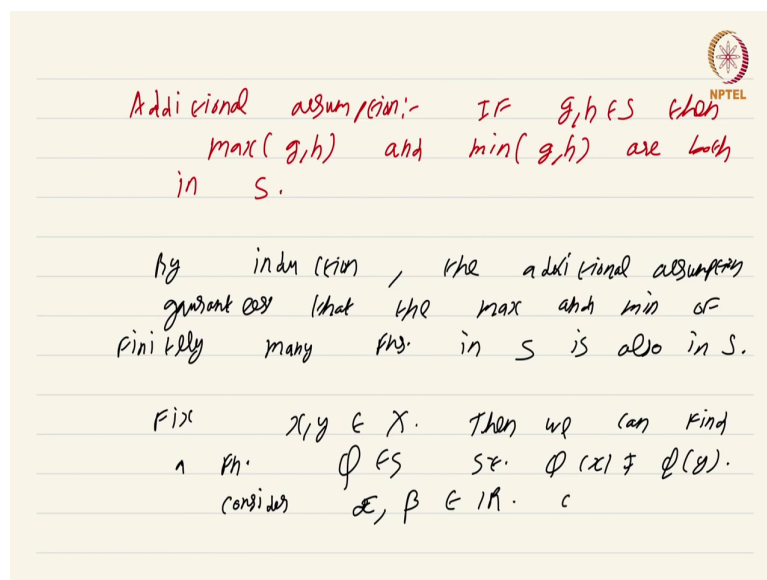 NPTEL
Additional assumption:- If g,h ∈ S then
max(g,h) and min(g,h) are both
in S.
By induction, the additional assumption
guarantees that the max and min of
finitely many fns. in S is also in S.
Fix x,y ∈ X. Then we can find
a fn. φ ∈ S s.t. φ(x) ≠ φ(y).
Consider α, β ∈ ℝ. c